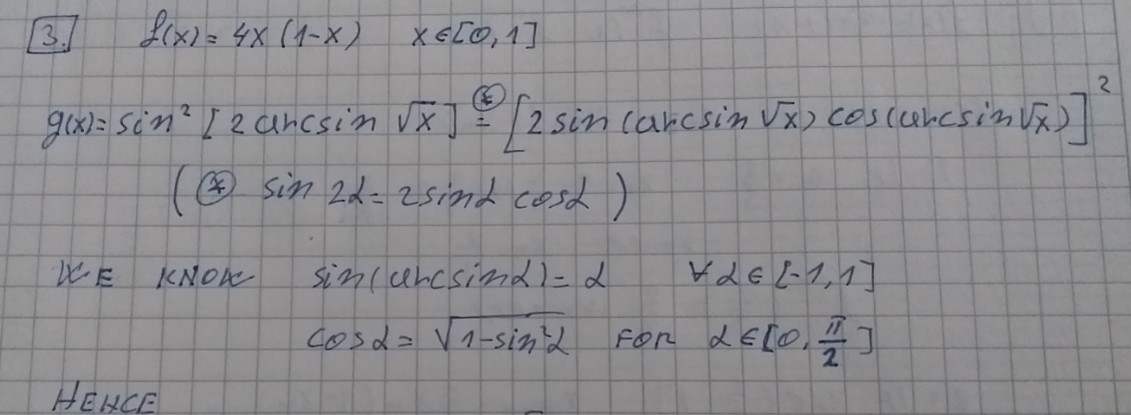 3. f(x)= 4x(1-x) x∈[0,1]
g(x)= sin² [2 arcsin √x] ⊛= [2 sin(arcsin √x) cos(arcsin √x)]²
(⊛ sin 2α = 2 sinα cosα)
WE KNOW sin(arcsinα)= α ∀α∈[-1,1]
cosα = √(1-sin²α) FOR α∈[0, π/2]
HENCE